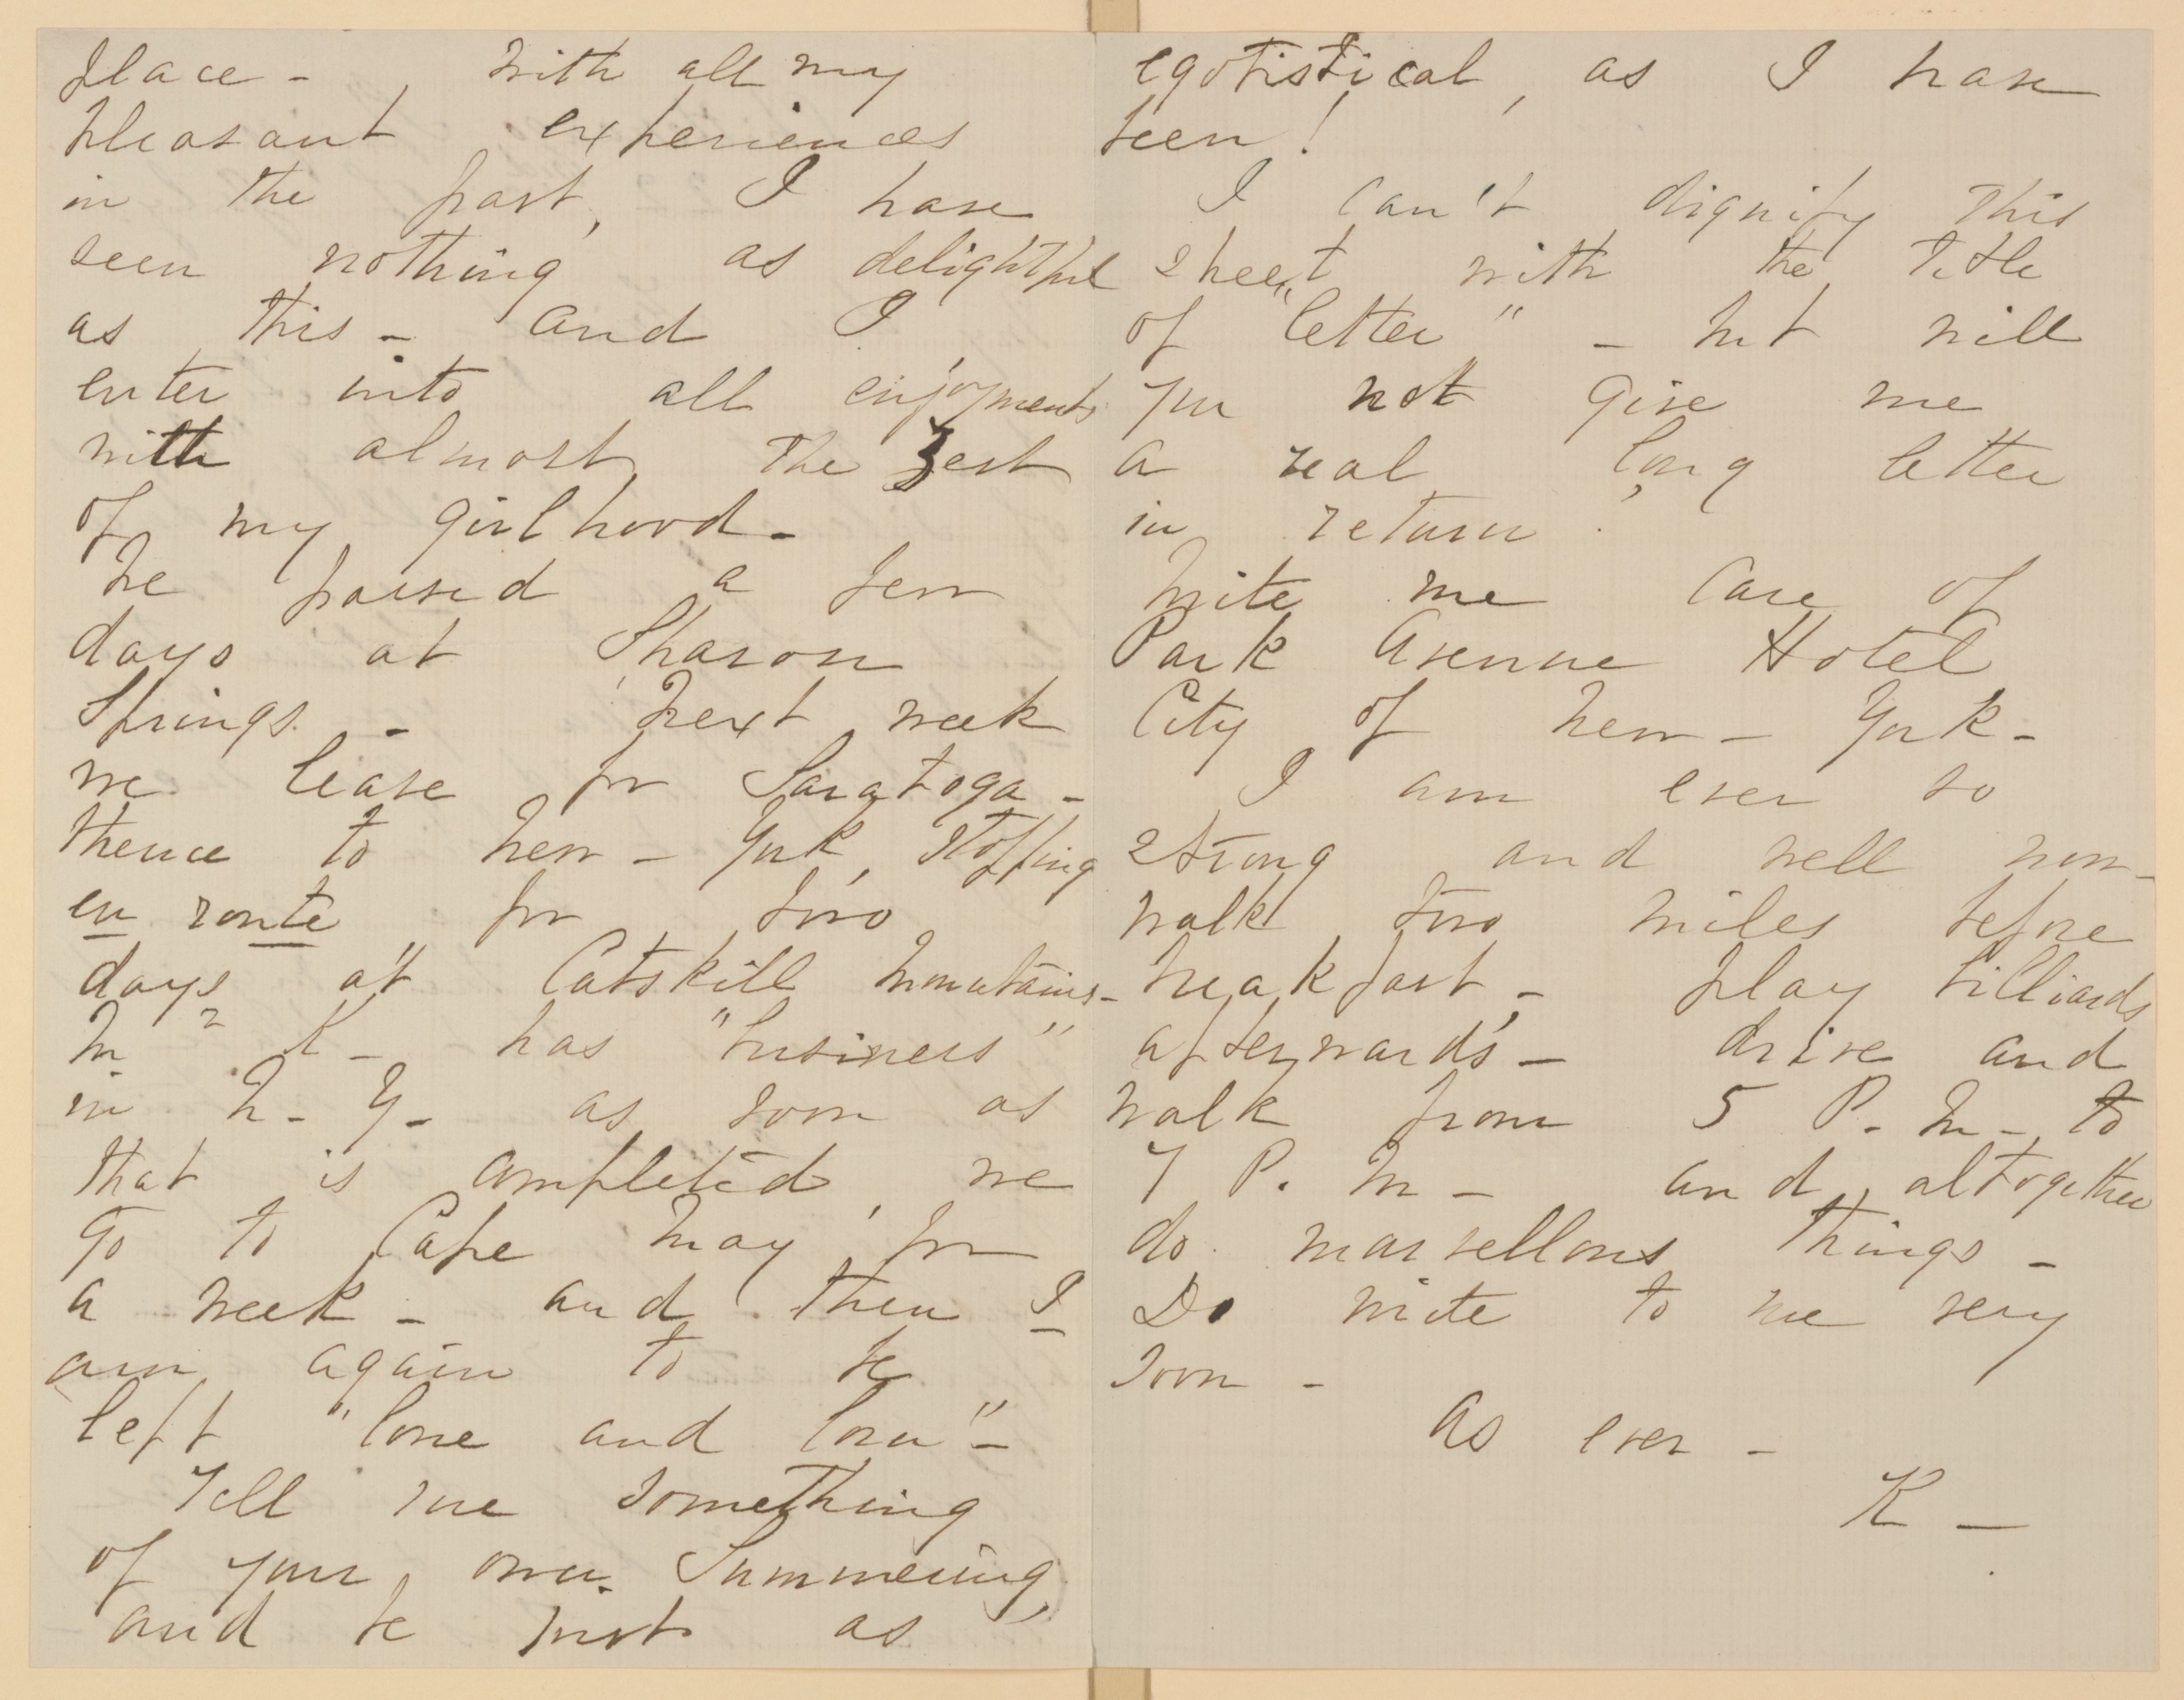 place - With all my
pleasant experiences
in the past, I have
seen nothing as delightful
as this - and I
enter into all enjoyments
with almost the zest
of my girlhood -
We passed a few
days at Sharon
Springs. - Next week
we leave for Saratoga -
thence to New - York, stopping
en route for two
days at Catskill Mountains -
Mr K - has "business"
in N - Y - as soon as
that is completed, we
go to Cape May for
a week - and then I
am again to be
left "lone and lorn" -
Tell me something
of your own Summering,
and be just as
egotistical, as I have
been!
I can't dignify this
sheet with the title
of "letter" - but will
you not give me
a real long letter
in return?
Write me Care of
Park Avenue Hotel
City of New - York -
I am ever so
strong and well now -
walk two miles before
breakfast, - play billiards
afterwards - drive and
walk from 5 P. M - to
7 P. M - and altogether
do marvellous things -
Do write to me very
soon -
As ever -
K -